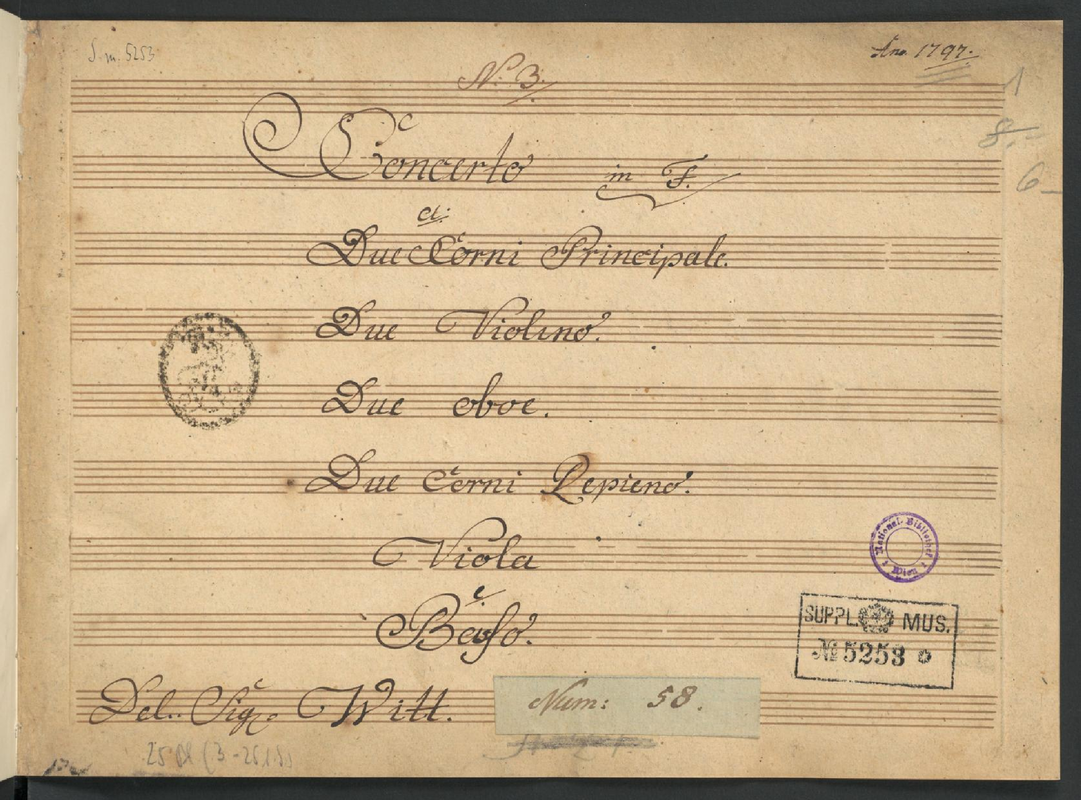 S. m. 5253
Ano. 1797.
No. 3.
1
8.
6
Concerto in F.
a:
Due Corni Principale.
Due Violino.
Due oboe.
Due Corni Repieno.
Viola
e
Basso.
Del. Sigr. Witt.
Num: 58.
National-Bibliothek Wien
SUPPL. MUS.
№ 5253